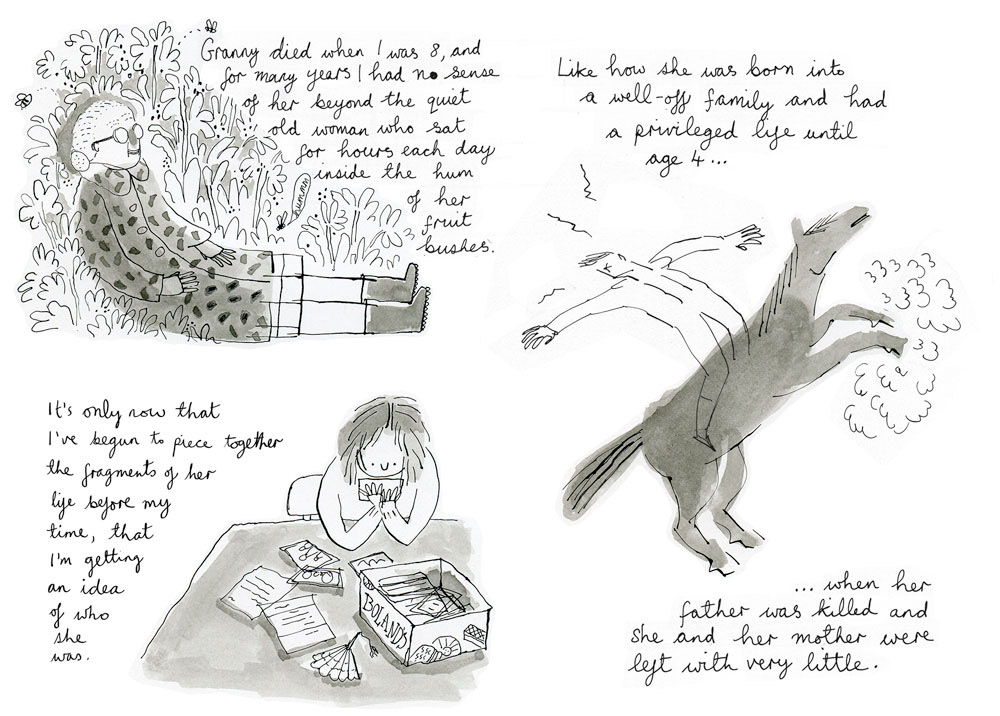 Granny died when I was 8, and
for many years I had no sense
of her beyond the quiet
old woman who sat
for hours each day
inside the hum
of her
fruit
bushes.
hummm
It's only now that
I've begun to piece together
the fragments of her
life before my
time, that
I'm getting
an idea
of who
she
was.
BOLANDS
Like how she was born into
a well-off family and had
a privileged life until
age 4...
... when her
father was killed and
she and her mother were
left with very little.